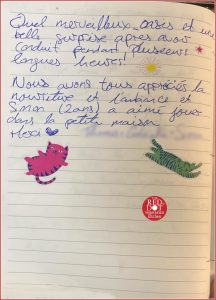 Quel merveilleux oases et une
belle surprise apres avoir
conduit pendant plusieurs
longues heures!
Nous avons tous appréciés la
nourriture et l'ambiance et
Simon (2ans) a aimé jouer
dans la petite maison
Merci
RED